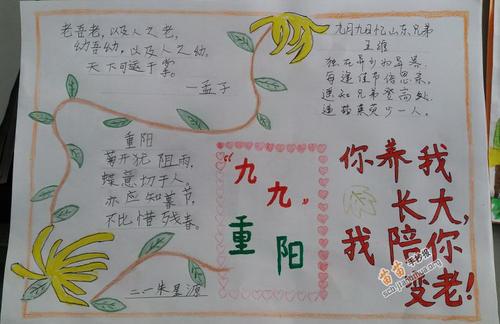 老吾老,以及人之老,
幼吾幼,以及人之幼,
天下可运于掌。
—孟子
九月九日忆山东兄弟
王维
独在异乡为异客,
每逢佳节倍思亲,
遥知兄弟登高处,
遍插茱萸少一人。
重阳
菊开犹阻雨,
蝶意切于人,
亦应知暮节,
不比惜残春。
“九九”
重阳
你养我
长大,
我陪你
变老!
二一朱星源
苗苗手抄报